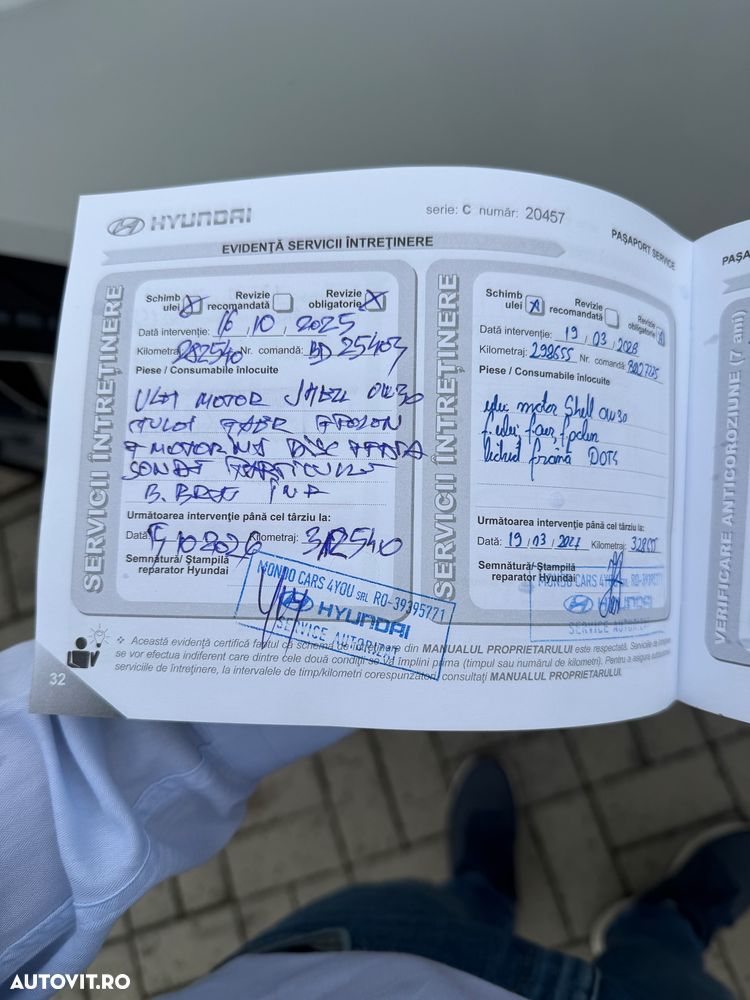 HYUNDAI
serie: C număr: 20457
PAȘAPORT SERVICE
EVIDENȚĂ SERVICII ÎNTREȚINERE
SERVICII ÎNTREȚINERE
Schimb ulei
Revizie recomandată
Revizie obligatorie
Dată intervenție: 16 , 10 , 2025
Kilometraj: 282540 Nr. comandă: BD 25403
Piese / Consumabile înlocuite
MOTOR SHELL 0W30
Următoarea intervenție până cel târziu la:
Dată: 10 2026 Kilometraj: 312540
Semnătură/ Ștampilă
reparator Hyundai
MONDO CARS 4YOU SRL RO-39395771
HYUNDAI
SERVICE AUTORIZAT
SERVICII ÎNTREȚINERE
Schimb ulei
Revizie recomandată
Revizie obligatorie
Dată intervenție: 19 , 03 , 2026
Kilometraj: 298655 Nr. comandă:
Piese / Consumabile înlocuite
ulei motor Shell 0W30
f. ulei, f. aer, f polen
lichid frână DOT4
Următoarea intervenție până cel târziu la:
Dată: 19 / 03 / 2027 Kilometraj:
Semnătură/ Ștampilă
reparator Hyundai
MONDO CARS 4YOU SRL RO-39395771
HYUNDAI
SERVICE AUTORIZAT
❖ Această evidență certifică faptul că schema de întreținere din MANUALUL PROPRIETARULUI este respectată. Serviciile de
se vor efectua indiferent care dintre cele două condiții se va împlini prima (timpul sau numărul de kilometri). Pentru a asigura
serviciile de întreținere, la intervalele de timp/kilometri corespunzători consultați MANUALUL PROPRIETARULUI.
32
VERIFICARE ANTICOROZIUNE (7 ani)
AUTOVIT.RO